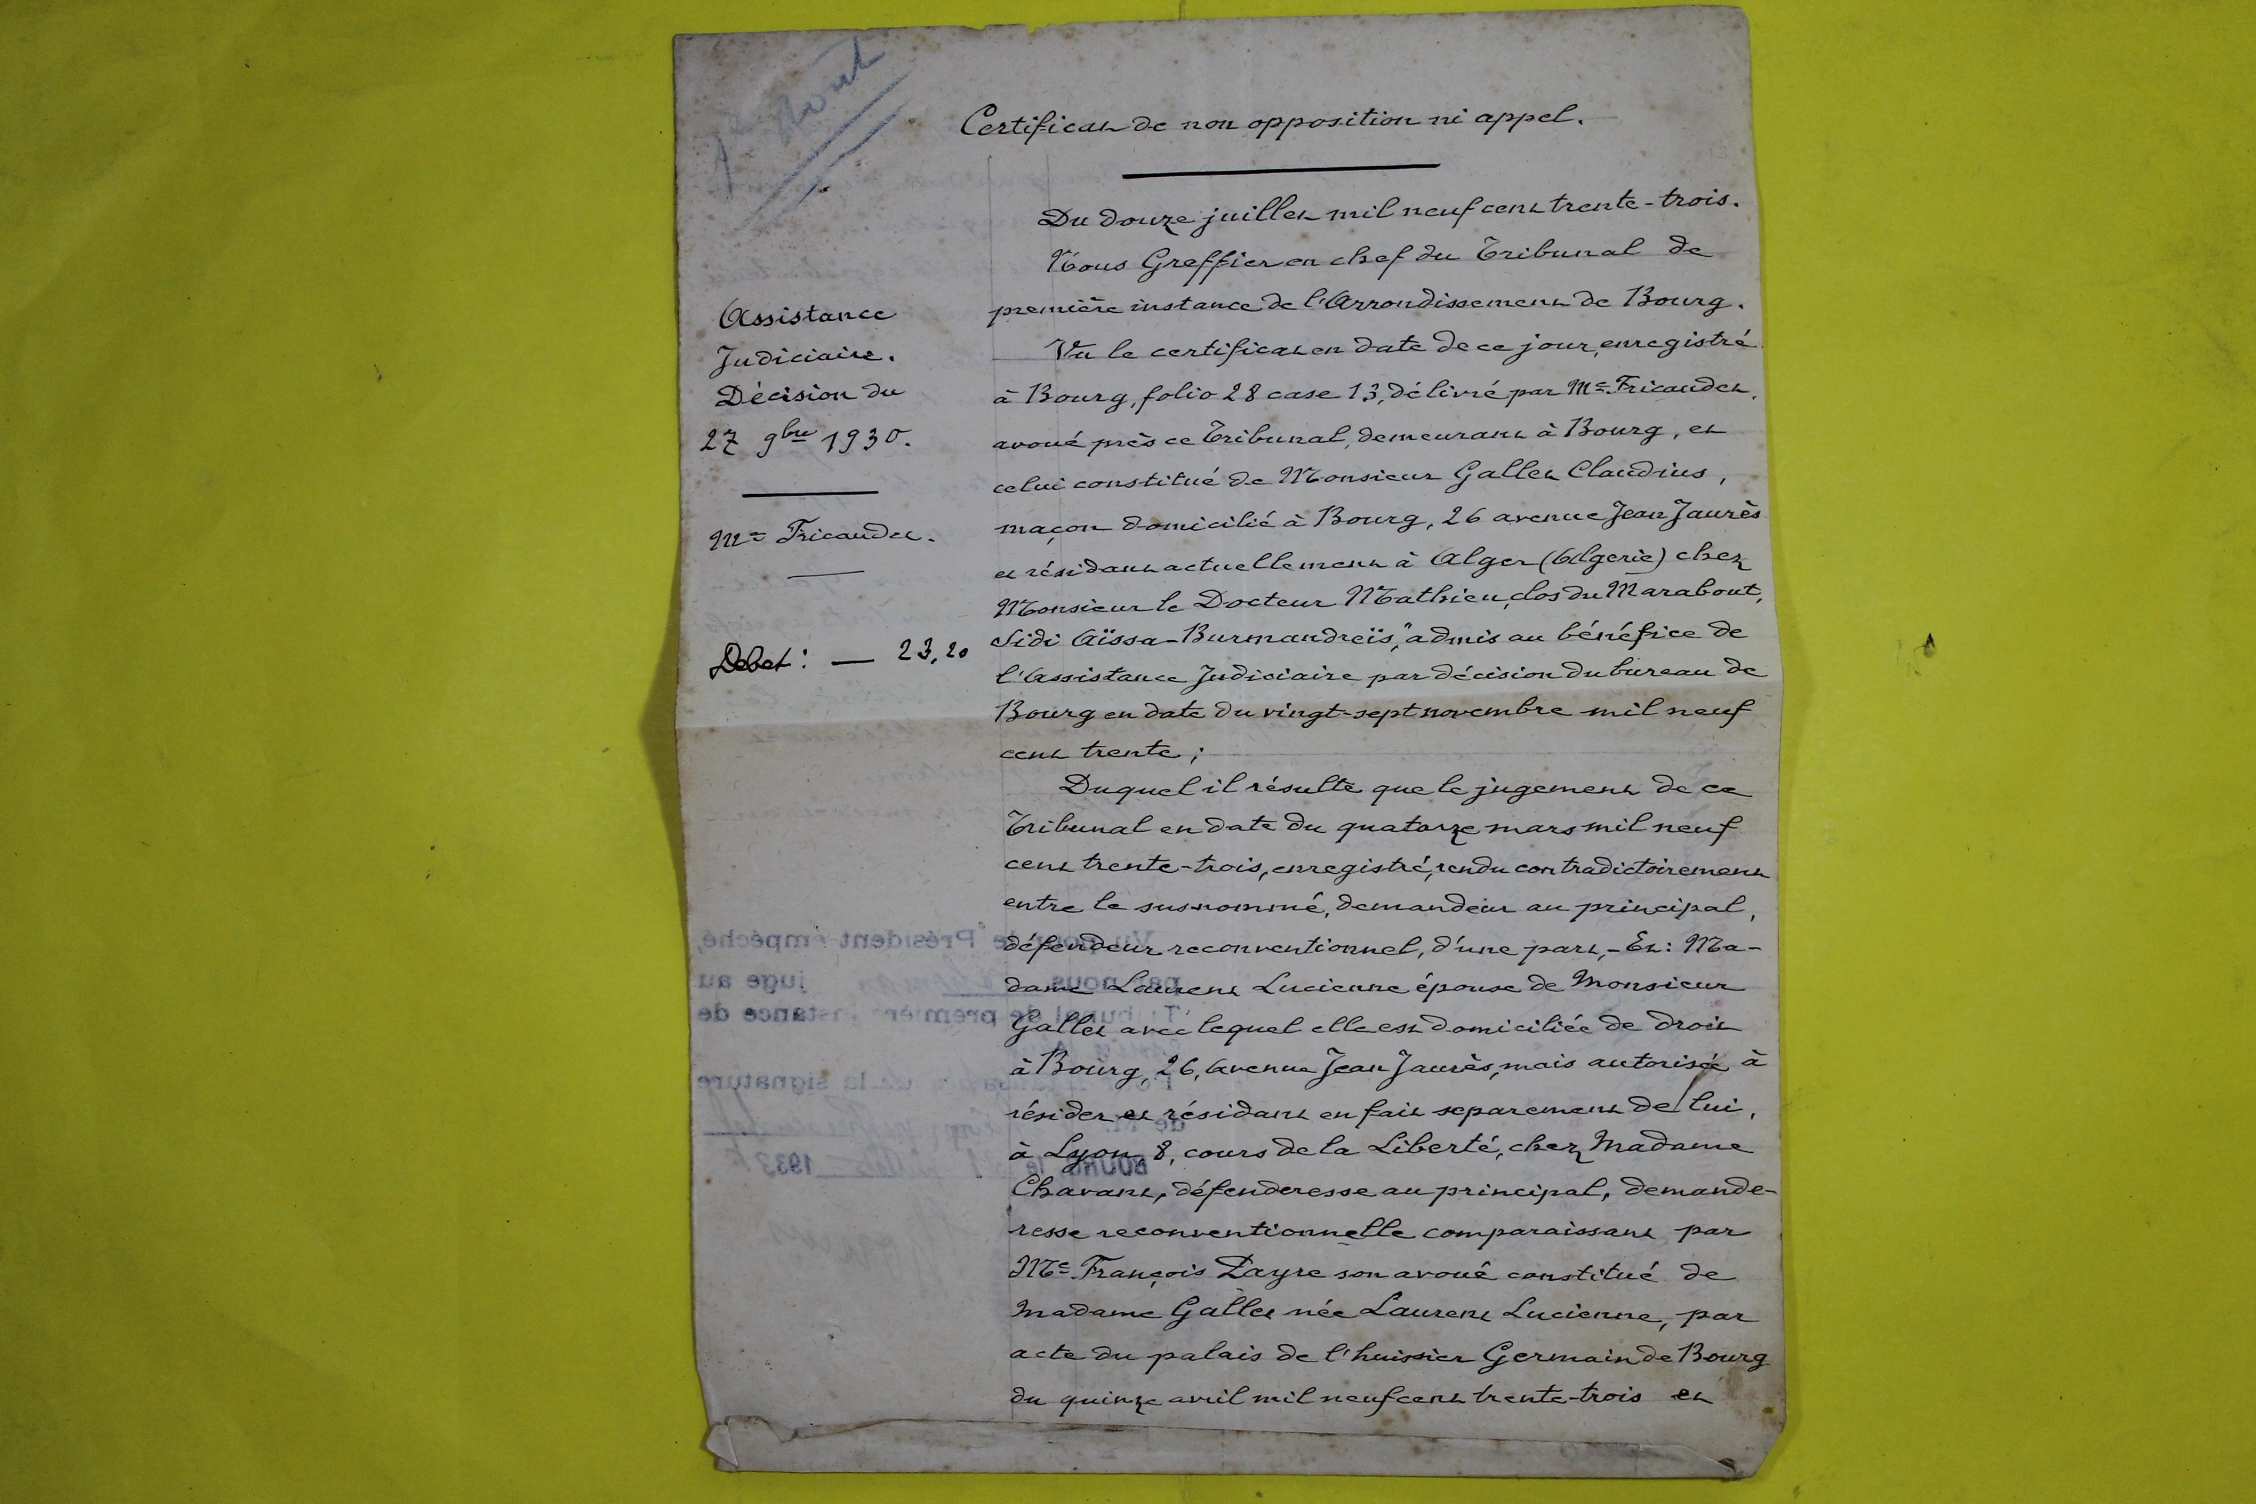 Certificat de non opposition ni appel.
Du douze juillet mil neuf cent trente-trois.
Nous Greffier en chef du Tribunal de
première instance de l'Arrondissement de Bourg.
Vu le certificat en date de ce jour, enregistré
à Bourg, folio 28 case 13, délivré par Me Fricaudet,
avoué près ce Tribunal, demeurant à Bourg, et
celui constitué de Monsieur Gallet Claudius,
maçon domicilié à Bourg, 26 avenue Jean Jaurès
et résidant actuellement à Alger (Algerie) chez
Monsieur le Docteur Mathieu, clos du Marabout,
Sidi Aïssa-Burmandreïs," admis au bénéfice de
l'Assistance Judiciaire par décision du bureau de
Bourg en date du vingt-sept novembre mil neuf
cent trente;
Duquel il résulte que le jugement de ce
Tribunal en date du quatorze mars mil neuf
cent trente-trois, enregistré, rendu contradictoirement
entre le susnommé, demandeur au principal,
défendeur reconventionnel, d'une part,- Et: Ma-
dame Laurent Lucienne épouse de Monsieur
Gallet avec lequel elle est domiciliée de droit
à Bourg, 26, avenue Jean Jaurès, mais autorisée à
résider et résidant en fait separement de lui,
à Lyon 8, cours de la Liberté, chez Madame
Chavant, défenderesse au principal, demande-
resse reconventionnelle comparaissant par
Me François Payre son avoué constitué de
Madame Gallet née Laurent Lucienne, par
acte du palais de l'huissier Germain de Bourg
du quinze avril mil neuf cent trente-trois et
Assistance
Judiciaire.
Décision du
27 9bre 1930.
Me Fricaudet.
Debet: — 23,20